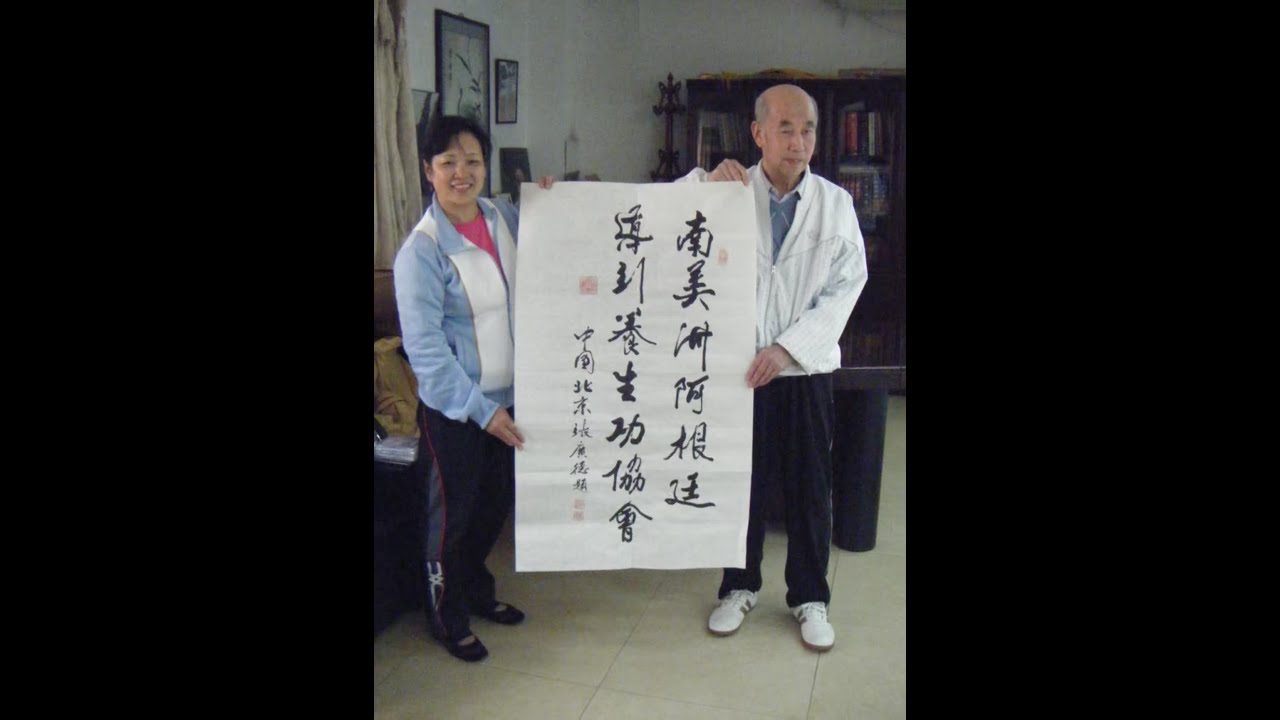 南美洲阿根廷
導引養生功協會
中國北京張廣德題